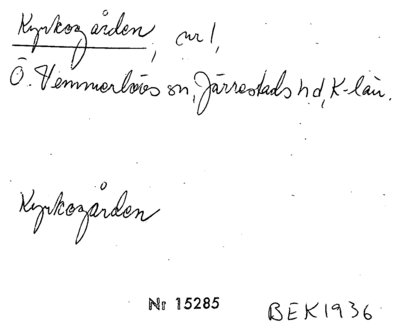 Kyrkogården, nr 1,
Ö. Vemmerlövs sn, Järrestads hd, K-län.
Kyrkogården
Nr 15285
BEK1936